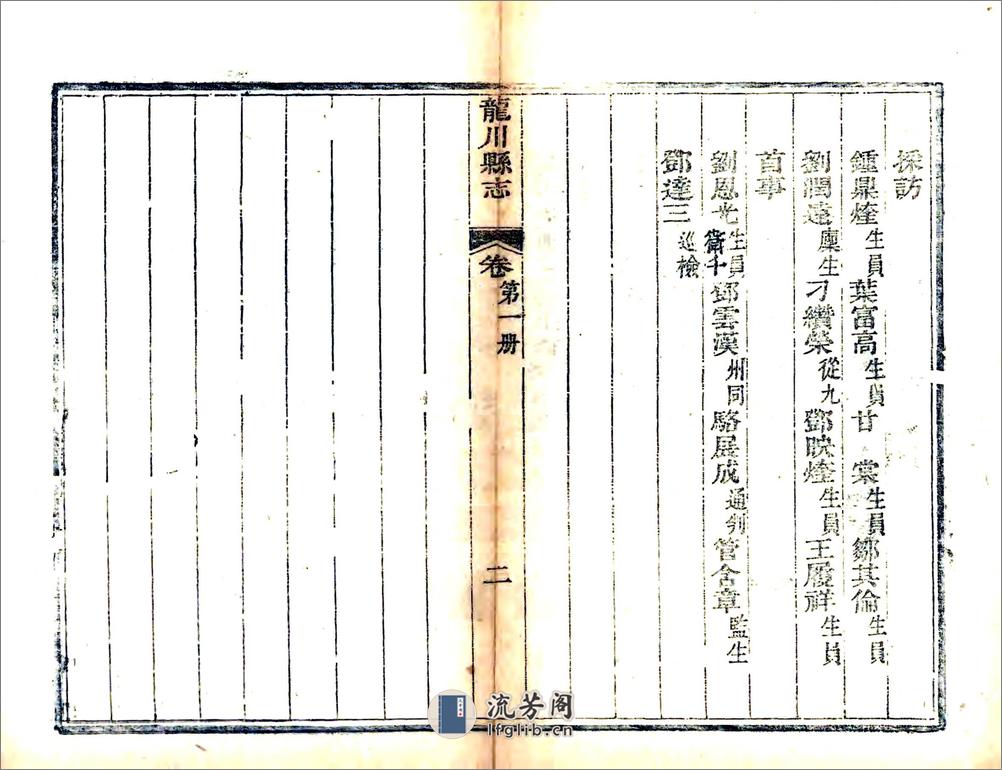 採訪
鍾鼎煃生員葉富高生員甘棠生員鄒其倫生員
劉潤遠廩生刁纘榮從九鄧映煃生員王履祥生員
首事
劉恩光生員衛千鄧雲漢州同駱展成通判管含章監生
鄧達三巡檢
龍川縣志 卷 第一册 二
流芳阁
lfglib.cn